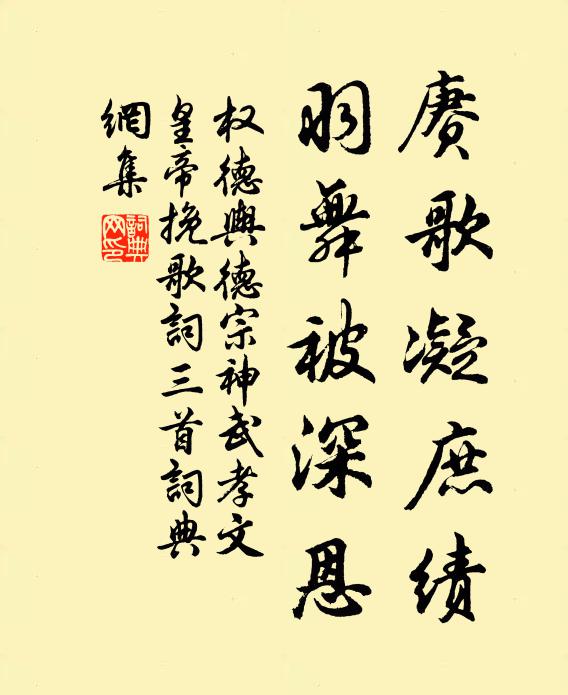 赓歌凝庶绩
羽舞被深恩
权德舆德宗神武孝文
皇帝挽歌詞三首詞典
網集
詞典
网印